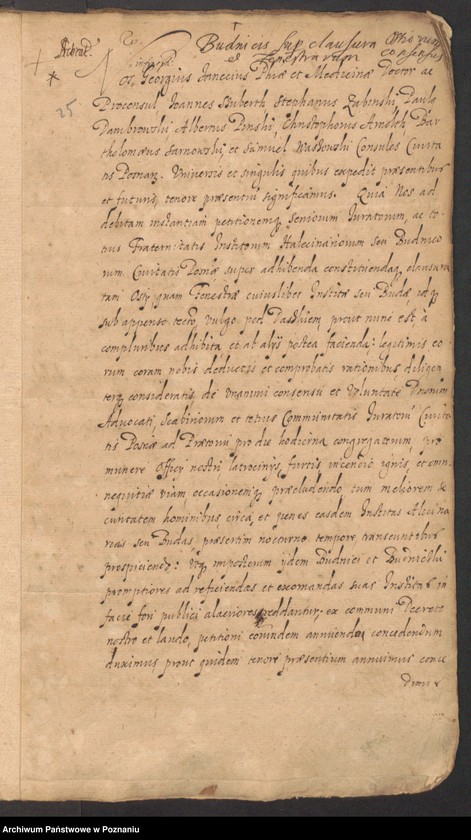 Budniciis sup clausura
et fenestrarum
consensus
25
Nos Georgius Janecius Phiæ et Medicinæ Doctor ac
Proconsul, Joannes Stuberth Stephanus Zabinski, Paulo
Dambrowski Albertus Pinski, Christophorus Arnolth Bar
tholomæus Sarnowski, et Samuel Wassowski Consules Civita
tis Posnan. Universis et singulis quibus expedit præsentibus
et futuris, tenore præsentium significamus. Quia Nos ad
debitam instantiam petitionemq Seniorum Juratorum, ac to
tius Fraternitatis Institorum Halecinariorum seu Budnico
rum Civitatis Posnæ super adhibenda constituendaq clausura
tam Ostÿ quam Fenestræ cuiuslibet Institæ seu Budæ idq
sub appenso tecto, vulgo pod Daskiem prout nunc est à
compluribus adhibita et ab alÿs postea facienda: legitimis eo
rum coram nobis deductis et comprobatis rationibus diligen
terq consideratis, de unanimi consensu et voluntate Dnorum
Advocati, Scabinorum et totius Communitatis Juratorum Civita
tis Posnæ ad Prætorium pro die hodierna congregatorum, pro
munere Officÿ nostri latrocinÿs, furtis, incendio ignis, et omni
nequitiæ viam occasionemq præcludendo, tum meliorem se
curitatem hominibus circa et penes easdem Institas Alecina
rias seu Budas præsertim nocturno tempore transeuntibus
prospiciendo: Utq impostorum ÿdem Budnici et Budniczki
promptiores ad reficiendas et exornandas suas Institas in
facie fori publici alacriores reddantur; ex communi Decreto
nostro et laudo, petitioni eorundem annuendu concedendum
duximus prout quidem tenore præsentium annuimus conce
dimus
Archiwum Państwowe w Poznaniu